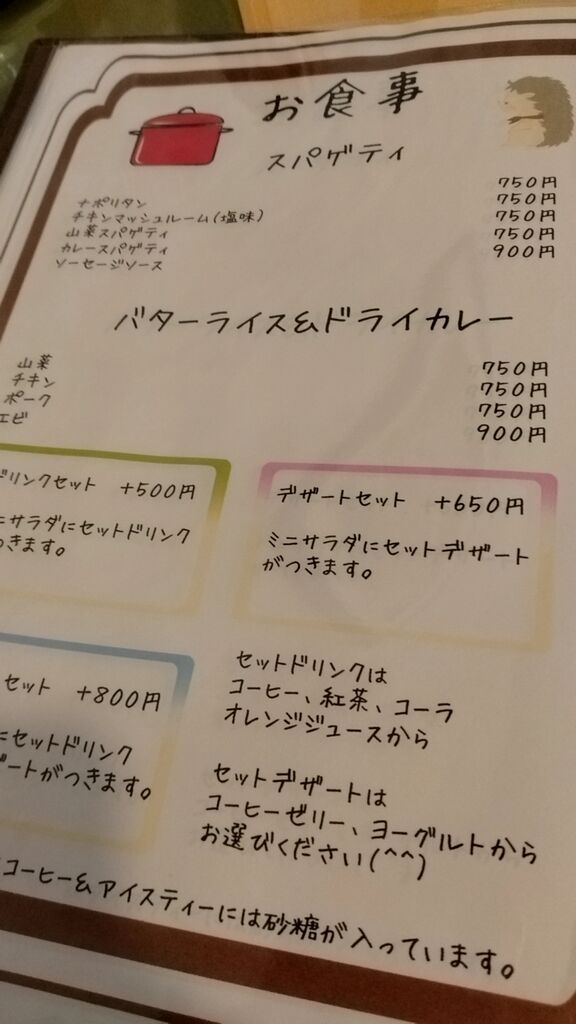 お食事
スパゲティ
ナポリタン 750円
チキンマッシュルーム(塩味) 750円
山菜スパゲティ 750円
カレースパゲティ 750円
ソーセージソース 900円
バターライス&ドライカレー
山菜 750円
チキン 750円
ポーク 750円
エビ 900円
ドリンクセット +500円
ニサラダにセットドリンク
つきます。
デザートセット +650円
ミニサラダにセットデザート
がつきます。
セット +800円
にセットドリンク
ザートがつきます。
セットドリンクは
コーヒー、紅茶、コーラ
オレンジジュースから
セットデザートは
コーヒーゼリー、ヨーグルトから
お選びください(^^)
コーヒー&アイスティーには砂糖が入っています。